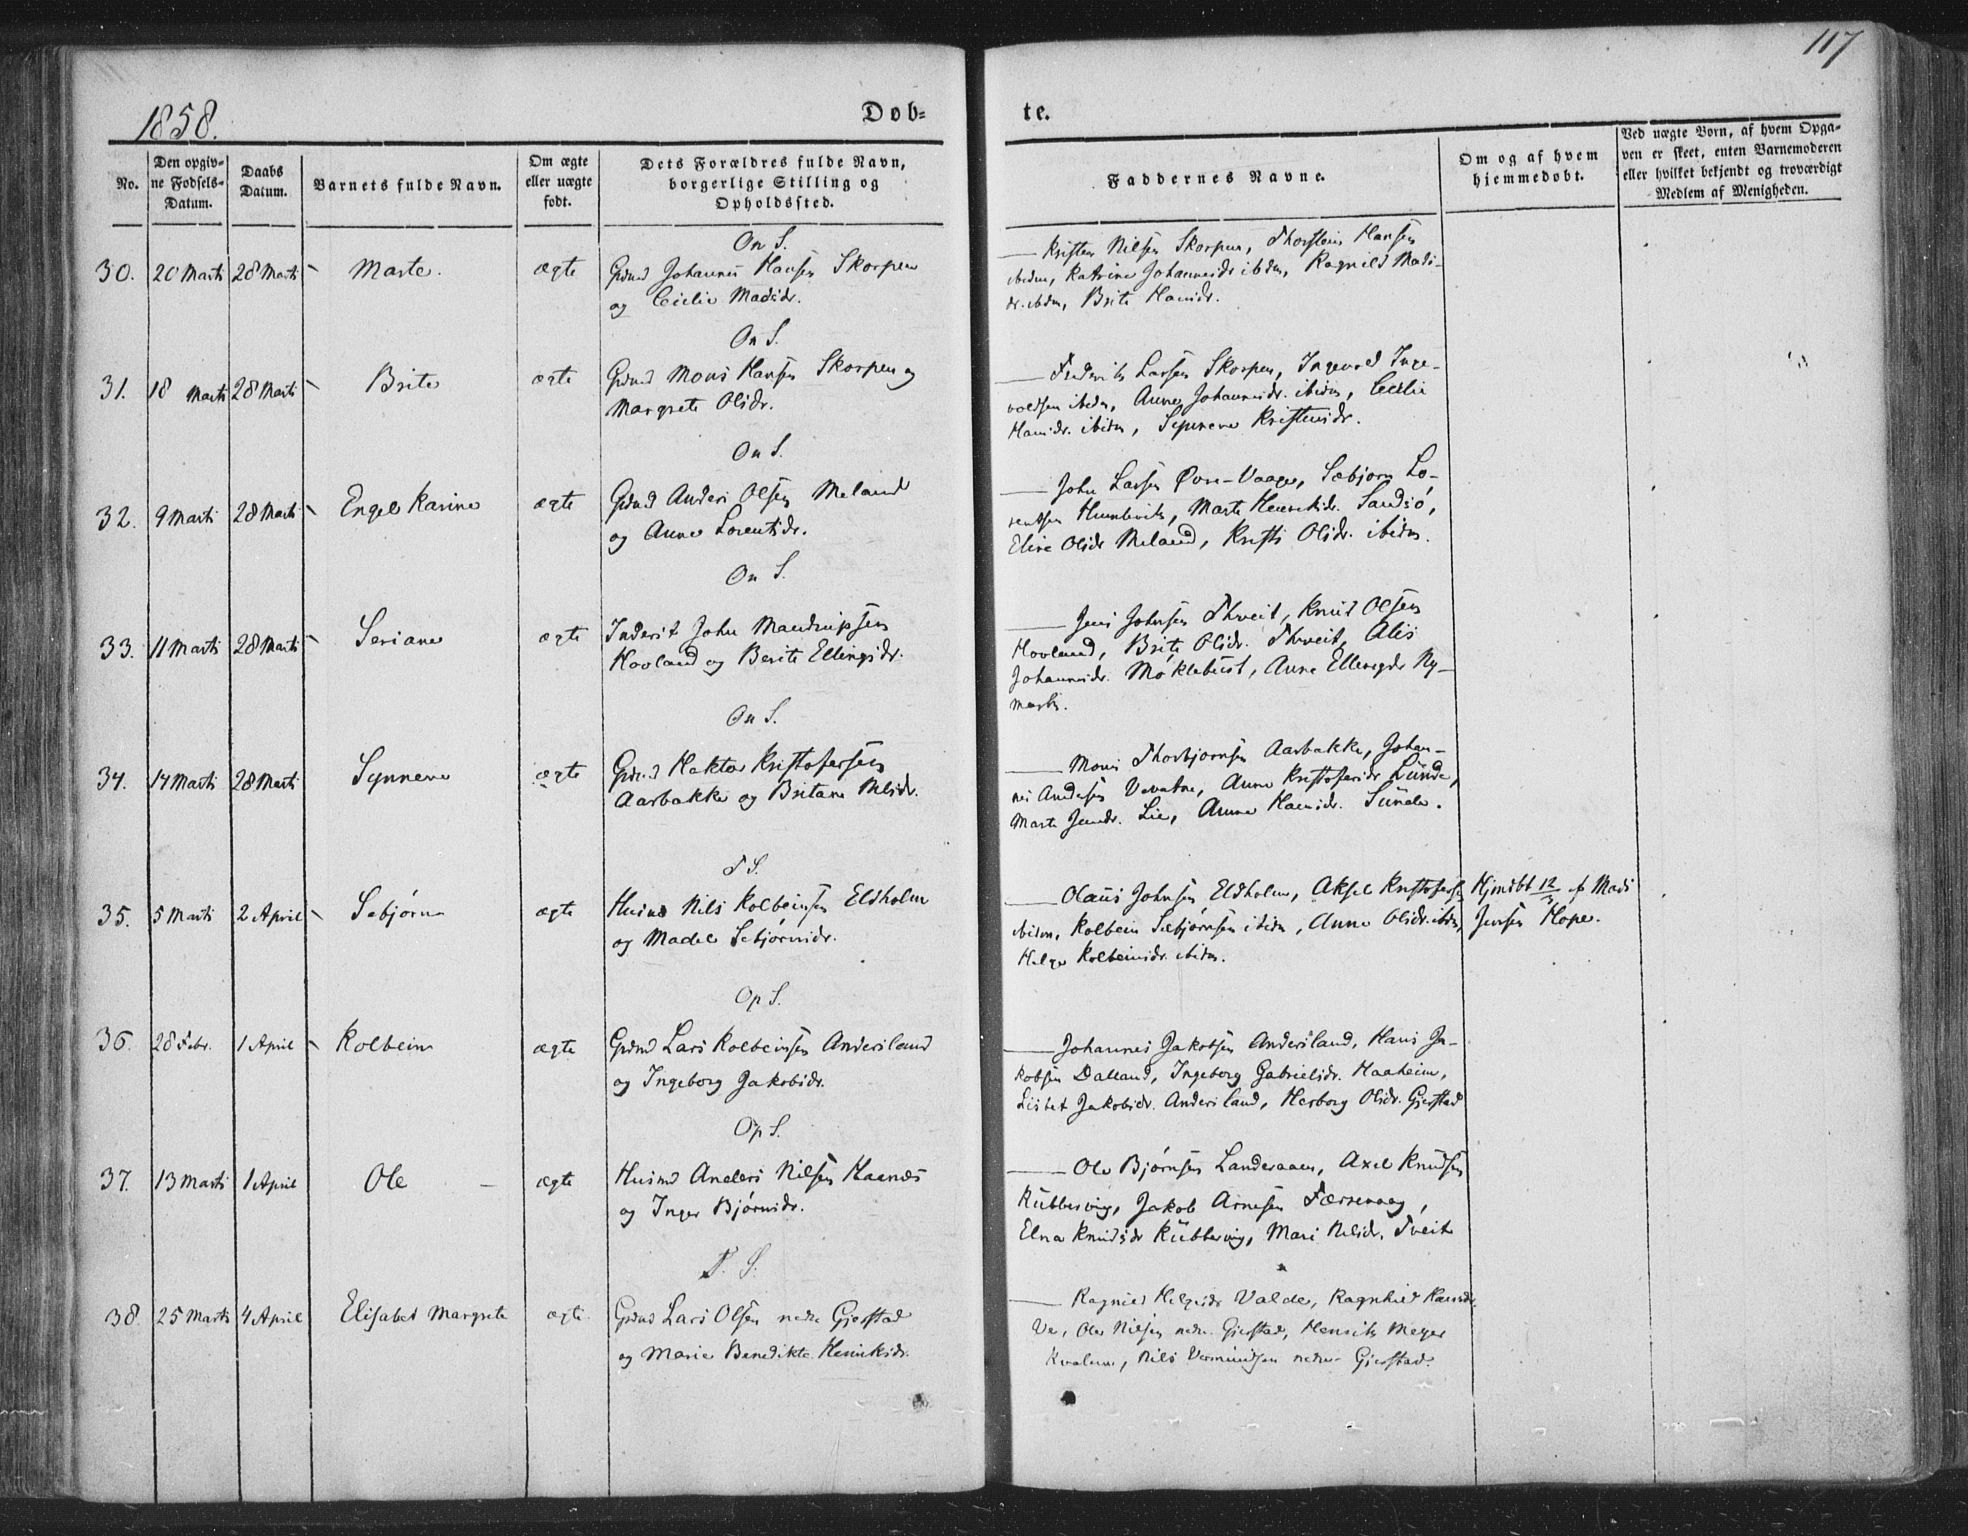 117
1858.
Døb-
te.
No.
Den opgiv-
ne Fødsels-
Datum.
Daabs
Datum.
Barnets fulde Navn.
Om ægte
eller uægte
født.
Dets Forældres fulde Navn,
borgerlige Stilling og
Opholdssted.
Faddernes Navne.
Om og af hvem
hjemmedøbt.
Ved uægte Born, af hvem Opga-
ven er skeet, enten Barnemoderen
eller hvilket bekjendt og troværdigt
Medlem af Menigheden.
On S.
30. 20 Marts 28 Marts Marte. ægte
Grdmd Johannes Hansen Skorpen
og Cicilie Madsdr.
Kristen Nilsen Skorpen, Thorstein Hansen
ibidm, Katrine Johannesdr ibidm, Ragnild Mads-
dr. ibidm, Brite Hansdr.
On S.
31. 18 Marts 28 Marts Brite ægte
Grdmd Mons Hansen Skorpen og
Margrete Olsdr.
Fredrik Larsen Skorpen, Ingevald Inge-
voldsen ibidm, Anne Johannesdr. ibidm, Cecilie
Hansdr. ibidm, Synneve Kristensdr.
On S.
32. 9 Marts 28 Marts Engel Karine ægte
Grdmd Anders Olsen Meland
og Anne Lorentsdr.
John Larsen Øvre-Vaage, Sæbjørn Lo-
rentsen Humlevik, Marte Henriksdr. Sandsø,
Eline Olsdr Meland, Kristi Olsdr. ibidm.
On S.
33. 11 Marts 28 Marts Seriane ægte
Inderst John Mandrupsen
Hovland og Berite Ellingsdr.
Jens Johnsen Thveit, Knud Olsen
Hovland, Brite Olsdr. Thveit, Alis
Johannesdr. Møklebust, Anne Ellensgdr Ny-
mark.
On S.
34. 14 Marts 28 Marts Synneve ægte
Grdmd Haktor Kristofersen
Aarbakke og Britane Nilsdr.
Mons Thorbjørnsen Aarbakke, Johan-
nes Andersen Vevatne, Anne Kristofersdr Lunde,
Marte Jensdr. Lie, Anne Hansdr. Sunde.
T S.
35. 5 Marts 2 April Sebjørn ægte
Husmd Nils Kolbeinsen Eldholm
og Madel Sebjørnsdr.
Olaus Johnsen Eldholm, Aksel Kristofersen
ibidm, Kolbein Sæbjørnsen ibidm, Anne Olsdr. ibidm,
Helge Kolbeinsdr. ibidm.
Hjmdbt 12/3 af Mads
Jensen Hope.
Op S.
36. 28 Febr. 1 April Kolbein ægte
Grdmd Lars Kolbeinsen Andersland
og Ingeborg Jakobsdr.
Johannes Jakobsen Andersland, Hans Ja-
kobsen Dalland, Ingeborg Gabrielsdr. Haaheim,
Lisbet Jakobsdr. Andersland, Herborg Olsdr. Gjerstad
Op S.
37. 13 Marts 1 April Ole ægte
Husmd Anders Nilsen Haanes
og Inger Bjørnsdr.
Ole Bjørnsen Landeraaen, Axel Knudsen
Kubbervig, Jakob Arnesen Færrevaag,
Elna Knudsdr Kubbervig, Mari Nilsdr. Tveit
T. S.
38. 25 Marts 4 April Elisabet Margrete ægte
Grdmd Lars Olsen nedre Gjerstad
og Marie Benedikte Henriksdr.
Ragnild Helgesdr Valde, Ragnhild Hansdr.
Ve, Ole Nilsen nedre Gjerstad, Henrik Meyer
Kvalem, Nils Vermundsen nedre Gjerstad.